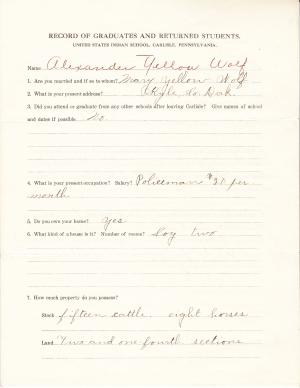 RECORD OF GRADUATES AND RETURNED STUDENTS.
UNITED STATES INDIAN SCHOOL, CARLISLE, PENNSYLVANIA.
Name Alexander Yellow Wolf
1. Are you married and if so to whom? Mary Yellow Wolf
2. What is your present address? Kyle So. Dak.
3. Did you attend or graduate from any other schools after leaving Carlisle? Give names of school
and dates if possible. No
4. What is your present occupation? Salary? Policeman $20 per
month
5. Do you own your home? Yes
6. What kind of house is it? Number of rooms? Log two
7. How much property do you possess?
Stock fifteen cattle eight horses
Land Two and one fourth sections